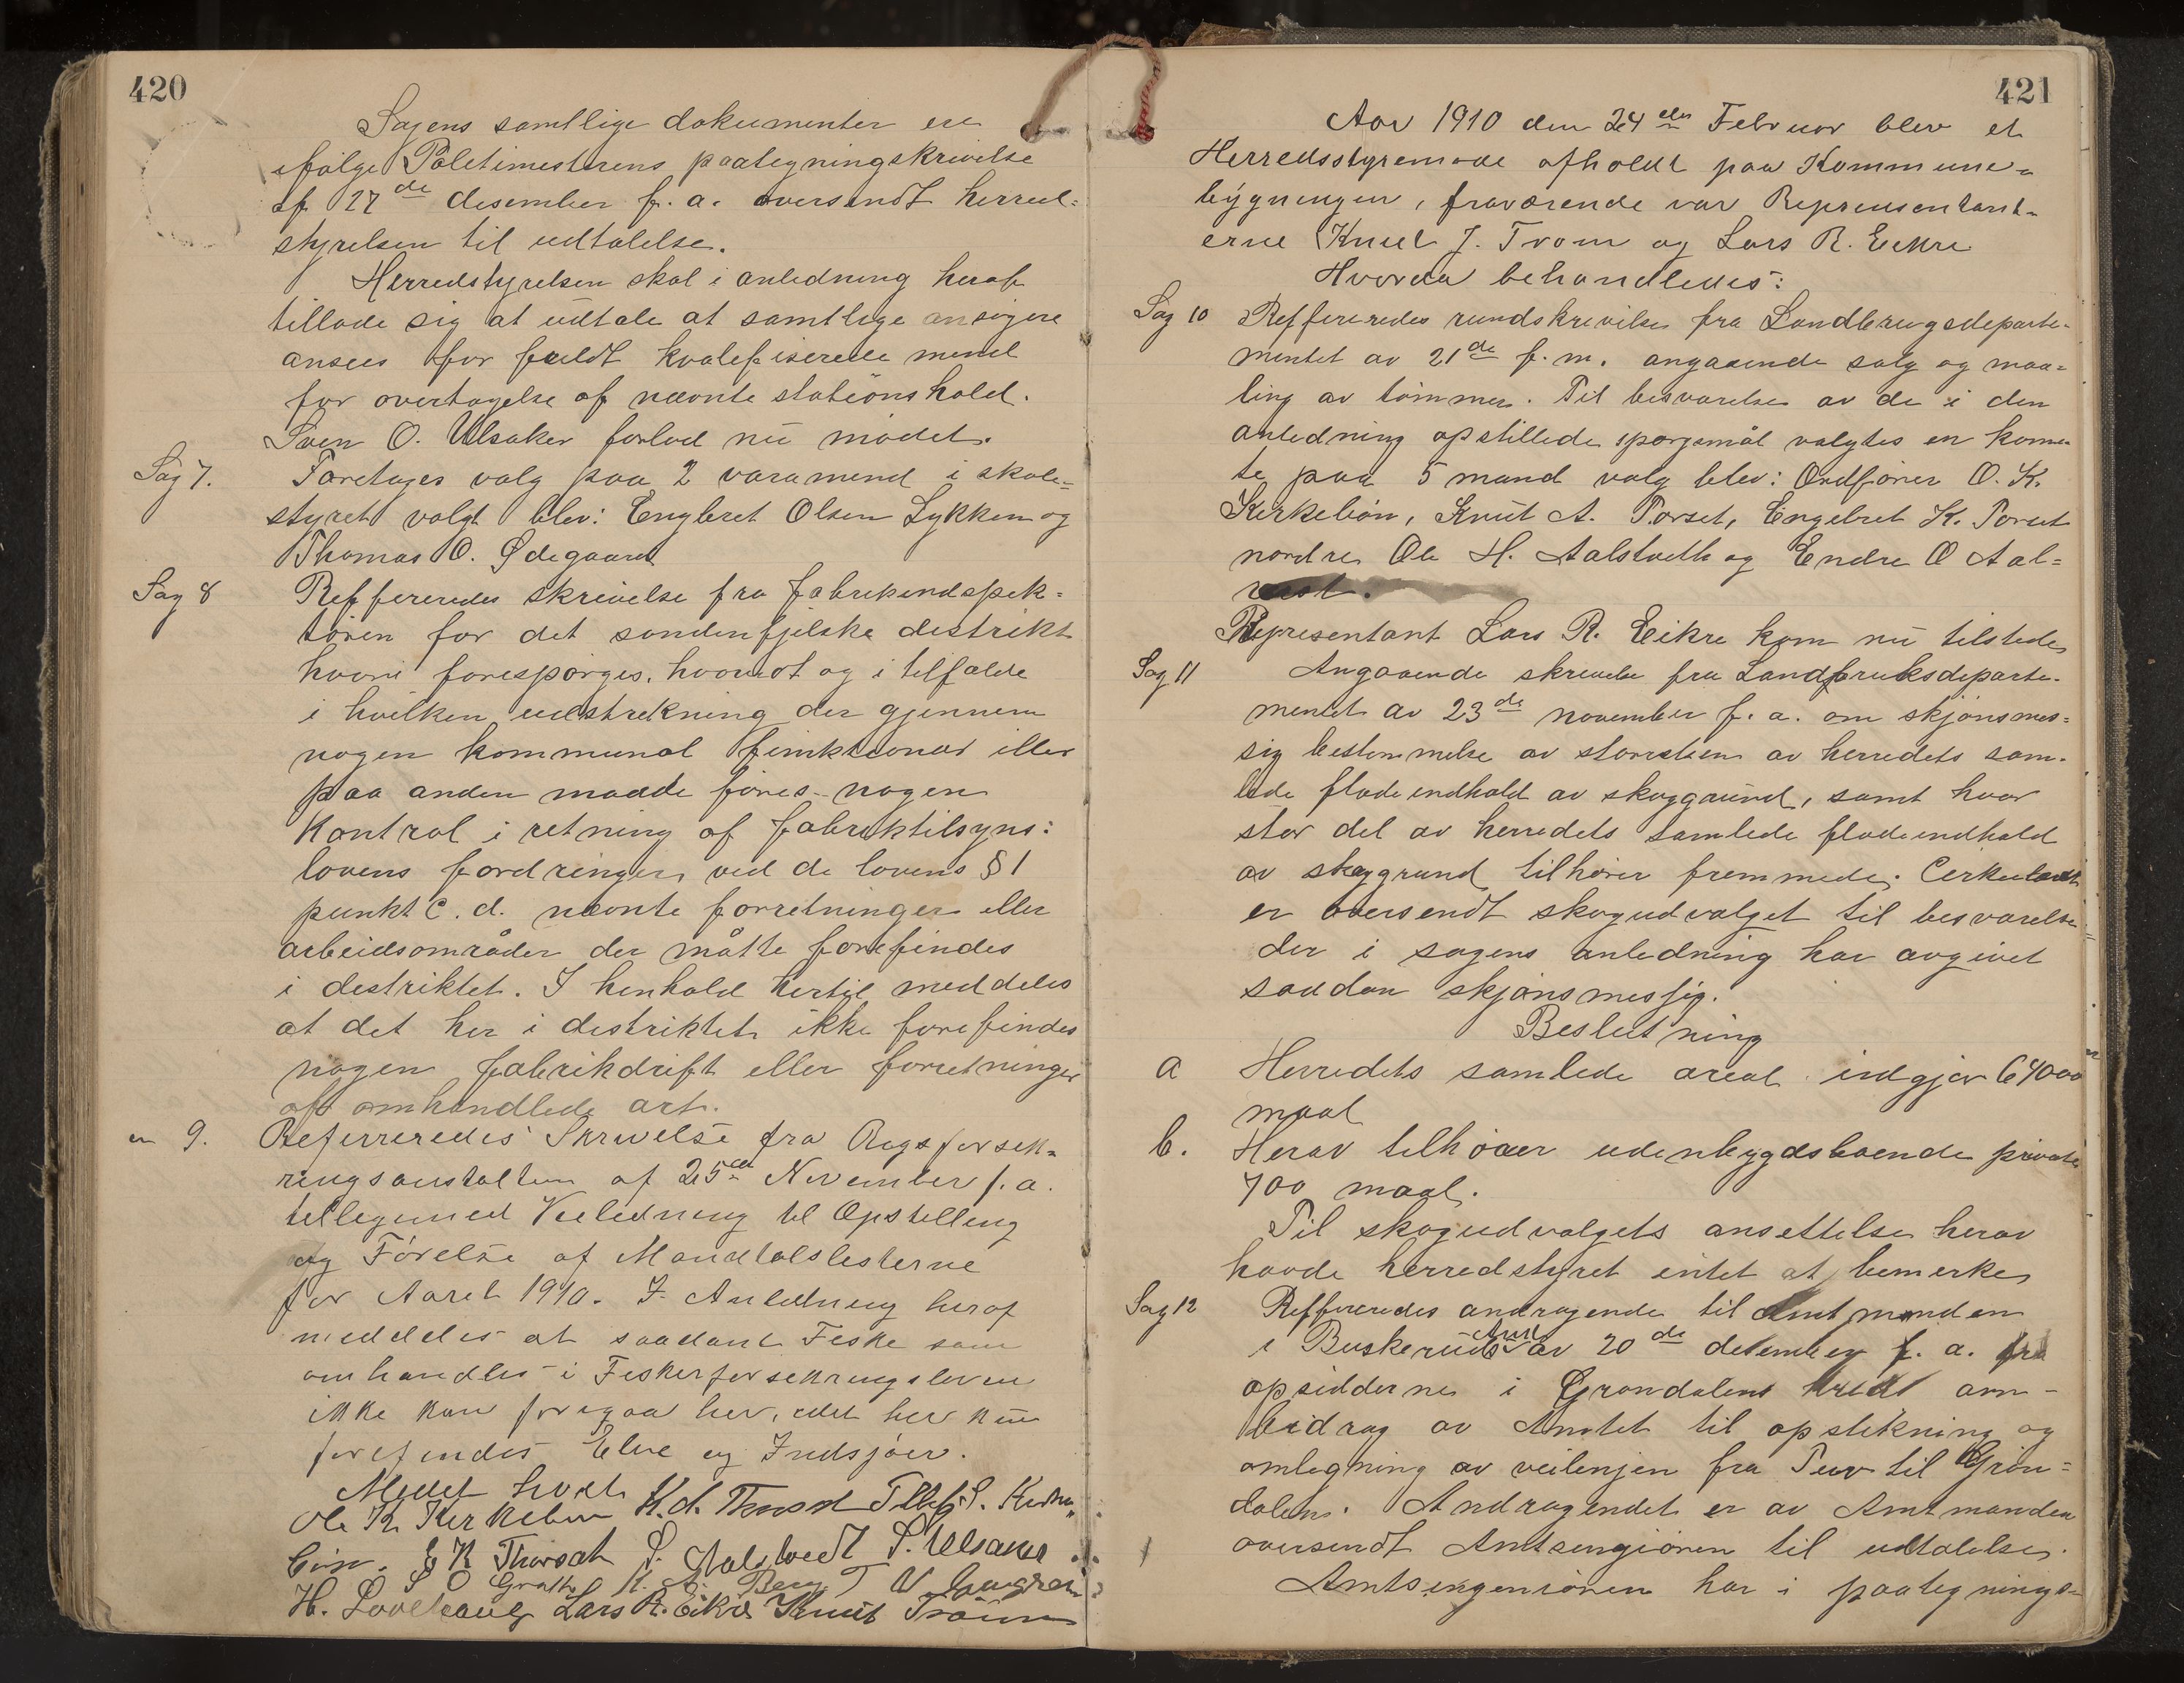 420
Sagens samtlige dokumenter ere
ifølge Politimesterens paategningskrivelse
af 27de desember f. a. oversendt herred=
styrelsen til udtalelse.
Herredstyrelsen skal i anledning heraf
tillade sig at udtale at samtlige ansøgere
ansees for fuldt kvalefiserede mend
for overtagelse af nævnte stationshold.
Sven O. Ulsaker forlod nu mødet.
Sag 7. Foretages valg paa 2 varamend i skole=
styret valgt blev: Engbret Olsen Lykken og
Thomas O. Ødegaard
Sag 8 Reffereredes skrivelse fra fabrikendspek=
tøren for det søndenfjelske destrikt
hvori forespørges, hvorvidt og i tilfælde
i hvilken udstrekning der gjennem
nogen kommunal funktionær eller
paa anden maade føres nogen
Kontrol i retning af fabriktilsyns:
lovens fordringer ved de lovens § 1
punkt C. d. nævnte forretninger eller
arbeidsområder der måtte forefindes
i destriktet. I henhold hertil meddeles
at det her i destriktet ikke forefindes
nogen fabrikdrift eller forretninger
af omhandlede art.
" 9. Referreredes Skrivelse fra Rigsforsik=
ringsanstalten af 25de November f. a.
tilligemed Veiledning til Opstilling
og Førelse af Mandtalslisterne
for Aaret 1910. I Anledning heraf
meddeles at saadant Fiske som
omhandles i Fiskerforsikringsloven
ikke kan foregaa her, idet her kun
forefindes Elve og Indsjøer.
Mødet hævet
Ole K. Kirkebøn K. A. Torset Tollef S. Kirke
bøn. E K Thorset S. Aalstvedt S. Ulsaker
S O Grøtte K. A. Berg T U
H. Løvehaug Lars R. Eikre Knut Trøim
421
Aar 1910 den 24de Februar blev et
Herredsstyremøde afholdt paa Kommune=
bygningen, fraværende var Representant=
erne Knut J. Trøm og Lars R. Eikre
Hvorda behandledes:
Sag 10 Reffereredes rundskrivelse fra Landbrugsdeparte=
mentet av 21de f. m. angaaende salg og maa=
ling av tømmer. Til besvarelse av de i den
anledning opstillede spørgsmål valgtes en komi
te paa 5 mand valg blev: Ordfører O. K.
Kirkebøn, Knut A. Torset, Engebret K. Torset
nordre Ole H. Aalstveth og Endre O Aal=
vest.
Representant Lars R. Eikre kom nu tilstede
Sag 11 Angaaende skrivelse fra Landbruksdeparte=
mentet av 23de november f. a. om skjønsmes=
sig bestemmelse av størrelsen av herredets sam=
lede fladeindhold av skoggrund, samt hvor
stor del av herredets samlede fladeindhold
av skoggrund tilhører fremmede. Cirkulæret
er oversendt skogudvalget til besvarelse
der i sagens anledning har avgivet
saadan skjønsmessig.
Beslutning
a Herredets samlede areal indgjør 64000
maal
b. Herav tilhører udenbygdsboende private
700 maal.
Til skogudvalgets ansettelse herav
havde herredstyret intet at bemerke
Sag 12 Reffereredes andragende til Amtmanden
i Buskeruds Amt av 20de desember f. a. fra
opsidderne i Grøndalens kreds om
bidrag av Amtet til opstikning og
omlegning av veilinjen fra Tuv til Grøn=
dalen. Andragendet er av Amtmanden
oversendt Amtsengiøren til udtalelse.
Amtsingeniøren har i paategnings=